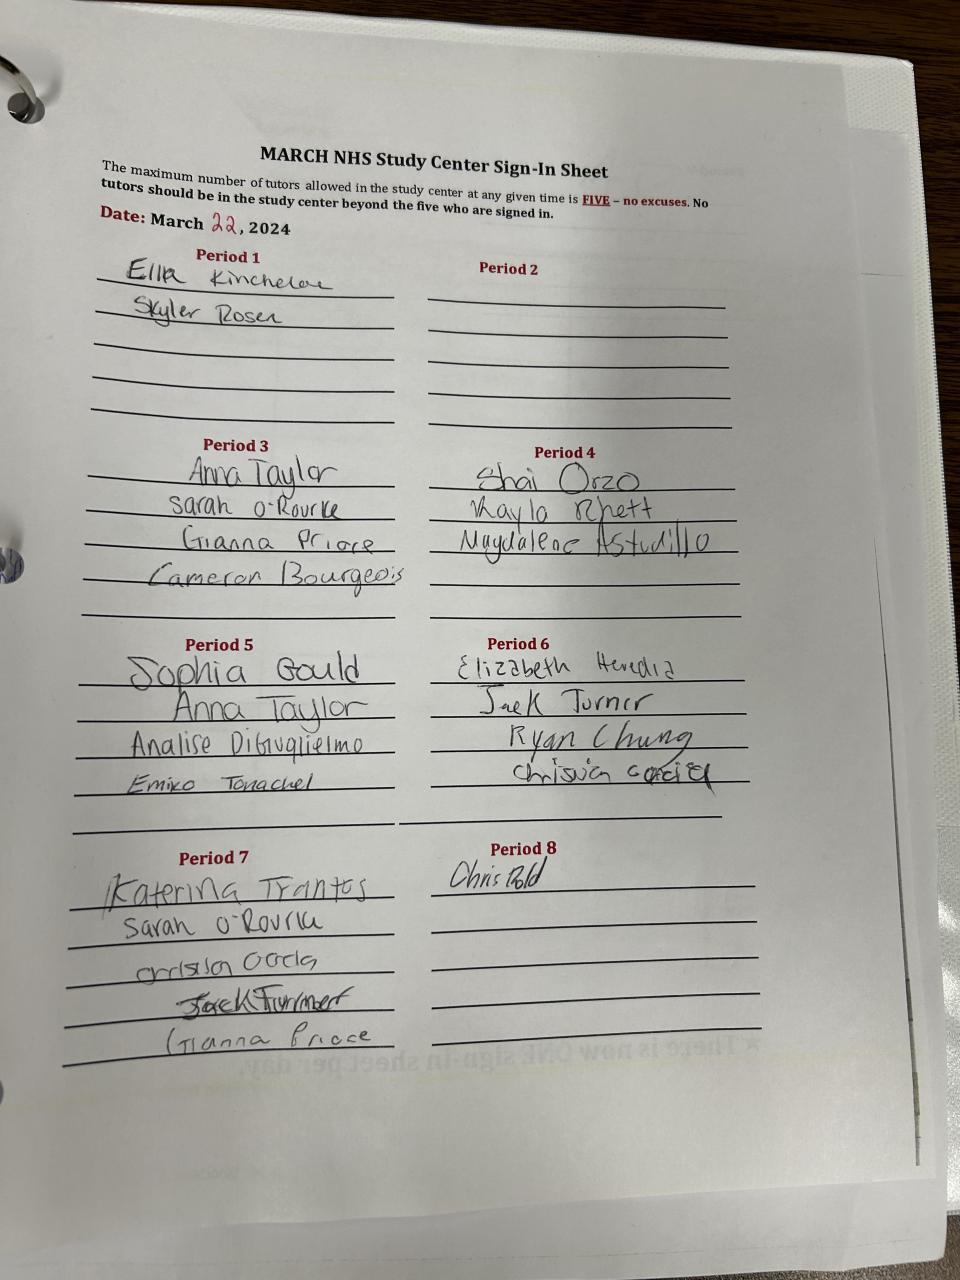 MARCH NHS Study Center Sign-In Sheet
The maximum number of tutors allowed in the study center at any given time is FIVE – no excuses. No
tutors should be in the study center beyond the five who are signed in.
Date: March 22, 2024
Period 1
Ella Kincheloe
Skyler Rosen
Period 2
Period 3
Anna Taylor
Sarah O'Rourke
Gianna Priore
Cameron Bourgeois
Period 4
Shai Orzo
Kayla Rhett
Magdalene Astudillo
Period 5
Sophia Gould
Anna Taylor
Analise DiGuglielmo
Emiko Tonachel
Period 6
Elizabeth Heredia
Jack Turner
Ryan Chung
Period 7
Katerina Trantos
Sarah O'Rourke
Jack Turner
Gianna Priore
Period 8
Chris
★ There is now ONE sign-in sheet per day.